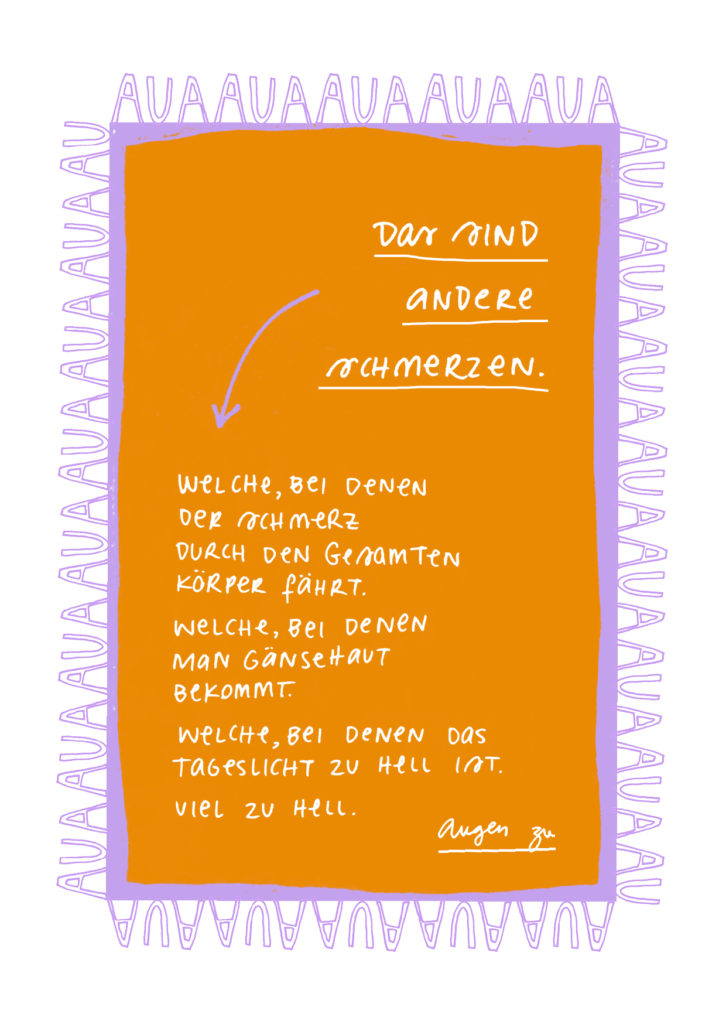 AUAAUAAUAAUAAUA
Das sind
andere
schmerzen.
Welche, bei denen
der schmerz
durch den Gesamten
Körper fährt.
Welche, bei denen
man Gänsehaut
bekommt.
Welche, bei denen das
Tageslicht zu hell ist.
Viel zu hell.
Augen zu